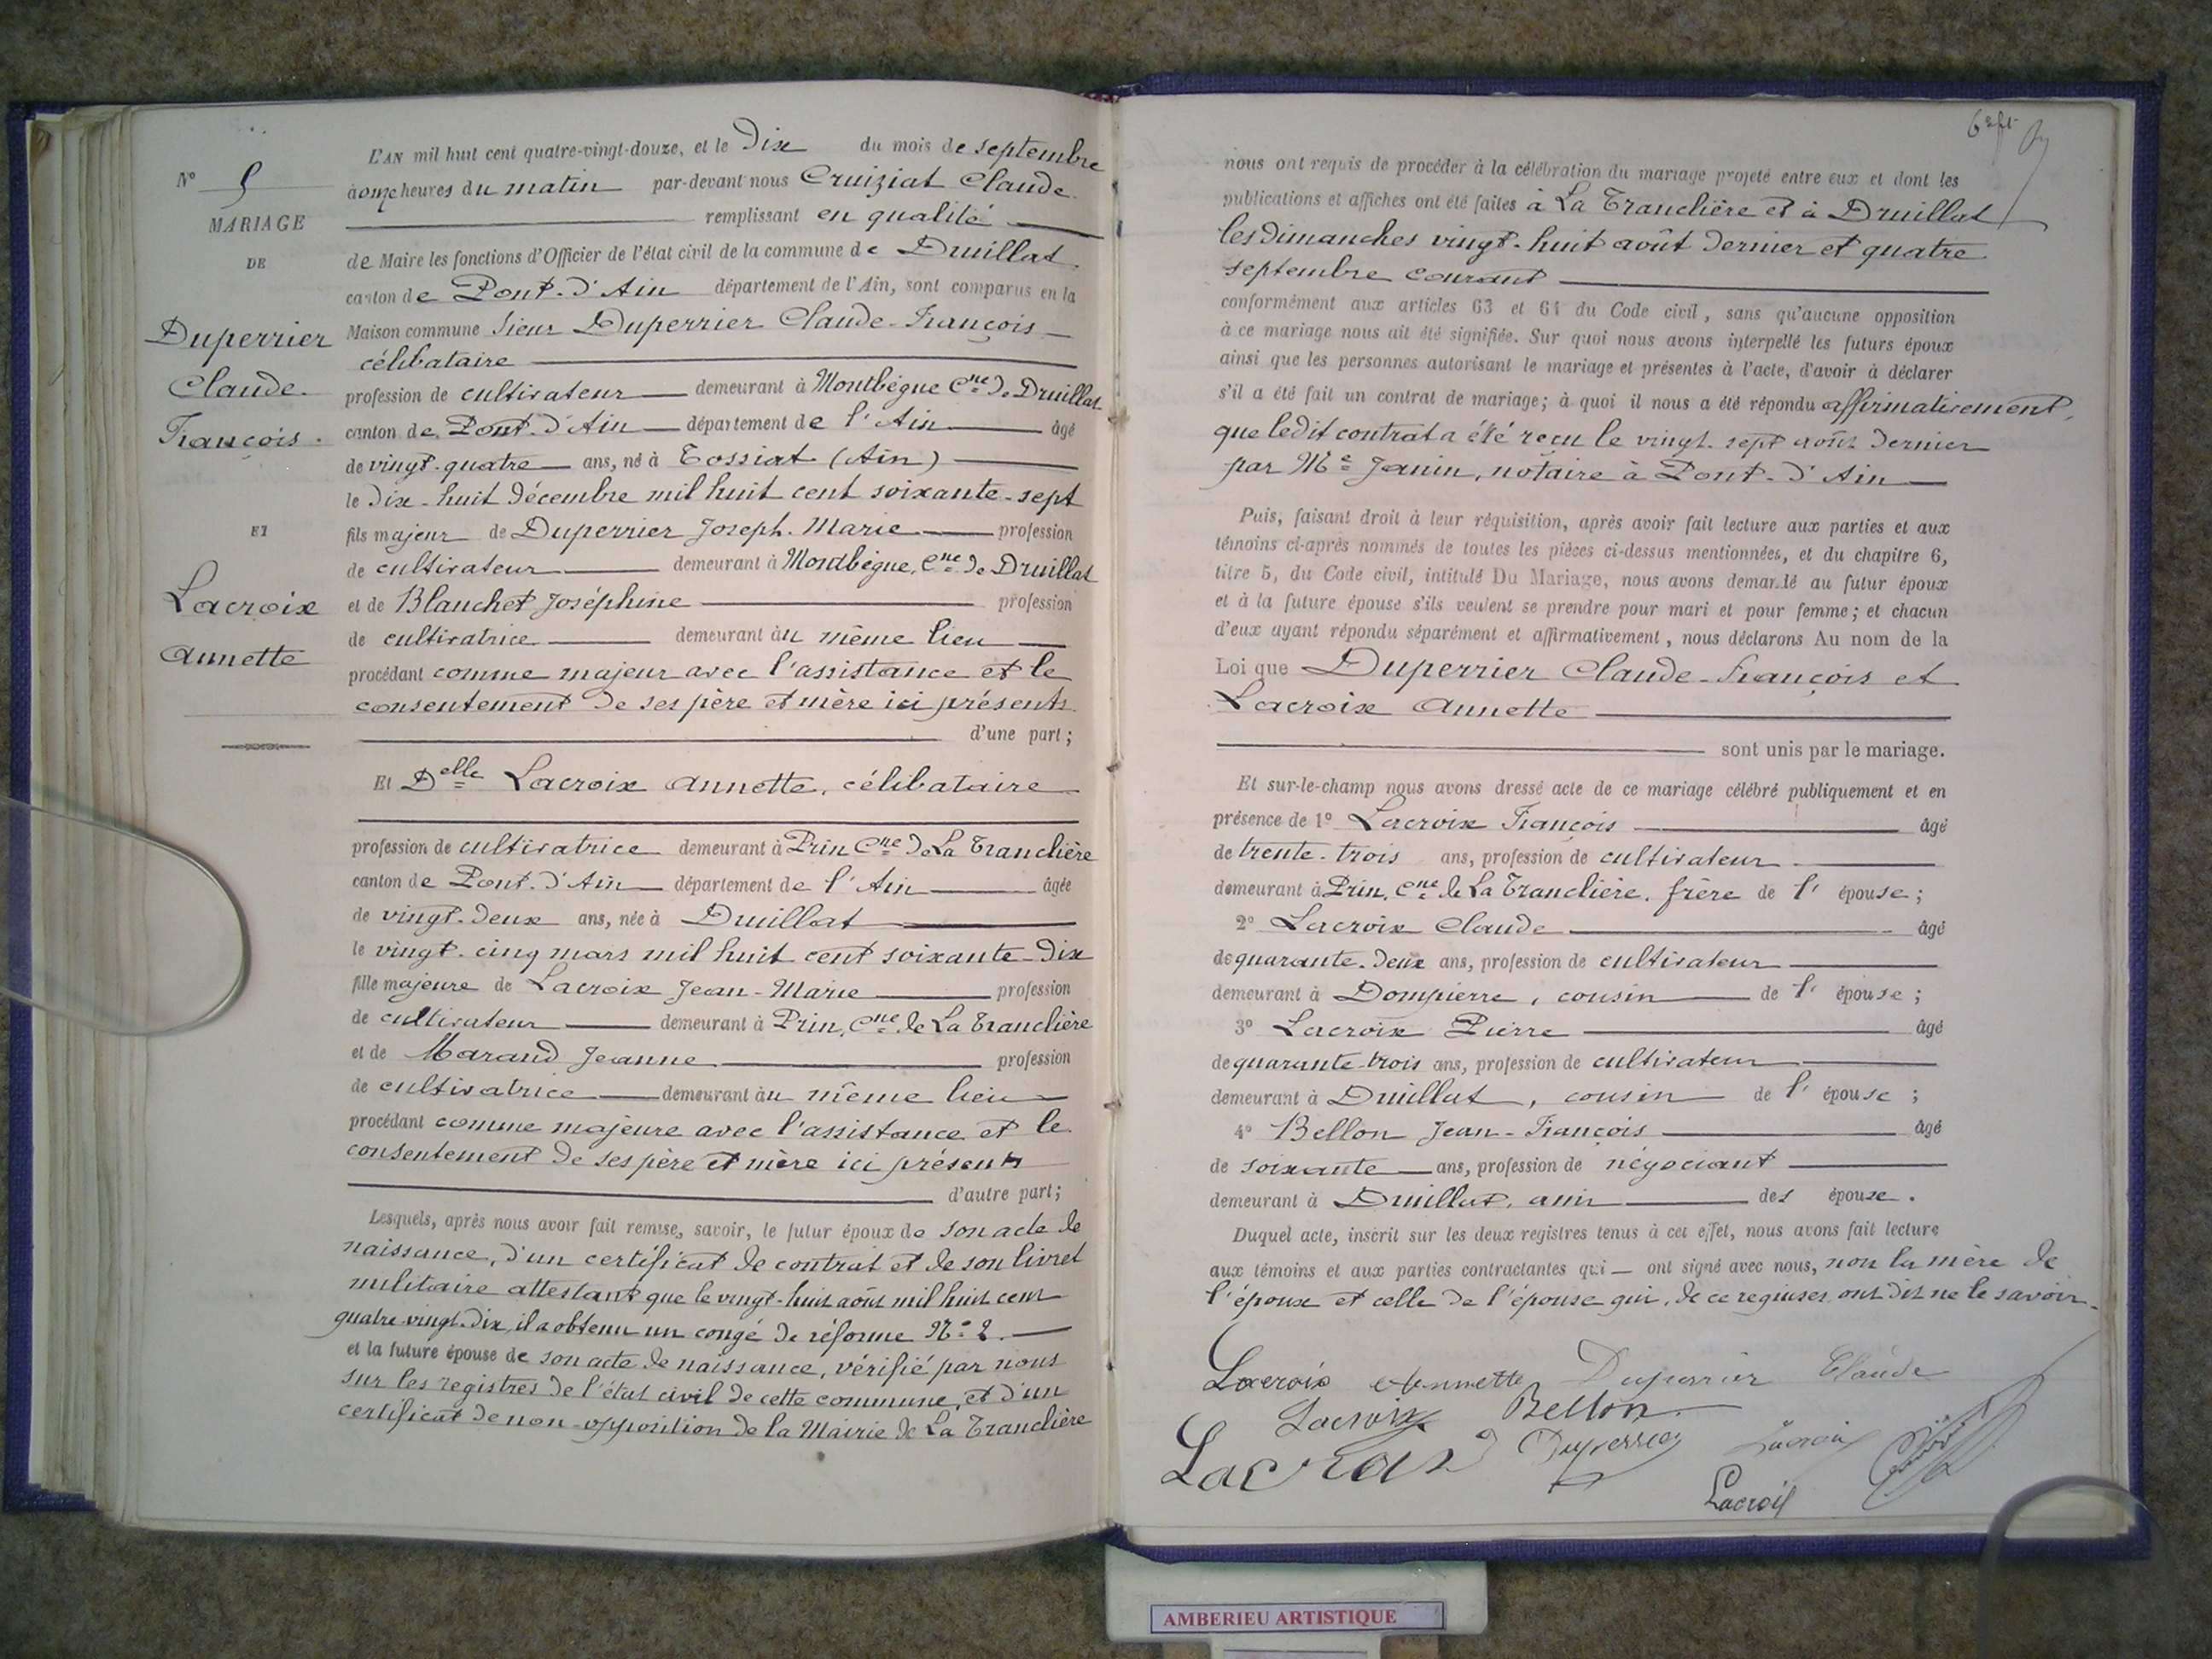 N° 5
MARIAGE
DE
Duperrier
Claude
François.
ET
Lacroix
Annette
L'AN mil huit cent quatre-vingt-douze, et le Dix du mois de septembre
à onze heures du matin par-devant nous Cruiziat Claude
remplissant en qualité
de Maire les fonctions d'Officier de l'état civil de la commune de Druillat
canton de Pont-d'Ain département de l'Ain, sont comparus en la
Maison commune Sieur Duperrier Claude-François
célibataire
profession de cultivateur demeurant à Montbègue Cne de Druillat
canton de Pont-d'Ain département de l'Ain âgé
de vingt-quatre ans, né à Tossiat (Ain)
le Dix-huit Décembre mil huit cent soixante-sept
fils majeur de Duperrier Joseph-Marie profession
de cultivateur demeurant à Montbègue, Cne de Druillat
et de Blanchet Joséphine profession
de cultivatrice demeurant au même lieu
procédant comme majeur avec l'assistance et le
consentement de ses père et mère ici présents
d'une part;
Et Delle Lacroix Annette, célibataire
profession de cultivatrice demeurant à Prin Cne de La Tranclière
canton de Pont-d'Ain département de l'Ain âgée
de vingt-deux ans, née à Druillat
le vingt-cinq mars mil huit cent soixante-Dix
fille majeure de Lacroix Jean-Marie profession
de cultivateur demeurant à Prin, Cne de La Tranclière
et de Marand Jeanne profession
de cultivatrice demeurant au même lieu
procédant comme majeure avec l'assistance et le
consentement de ses père et mère ici présents
d'autre part;
Lesquels, après nous avoir fait remise, savoir, le futur époux de son acte de
naissance, d'un certificat de contrat et de son livret
militaire attestant que le vingt-huit août mil huit cent
quatre-vingt-Dix, il a obtenu un congé de réforme N° 2.
et la future épouse de son acte de naissance, vérifié par nous
sur les registres de l'état civil de cette commune, et d'un
certificat de non-opposition de la Mairie de La Tranclière
nous ont requis de procéder à la célébration du mariage projeté entre eux et dont les
publications et affiches ont été faites à La Tranclière et à Druillat
les Dimanches vingt-huit août dernier et quatre
septembre courant
conformément aux articles 63 et 64 du Code civil, sans qu'aucune opposition
à ce mariage nous ait été signifiée. Sur quoi nous avons interpellé les futurs époux
ainsi que les personnes autorisant le mariage et présentes à l'acte, d'avoir à déclarer
s'il a été fait un contrat de mariage; à quoi il nous a été répondu affirmativement,
que ledit contrat a été reçu le vingt-sept août dernier
par Me Janin, notaire à Pont-d'Ain
Puis, faisant droit à leur réquisition, après avoir fait lecture aux parties et aux
témoins ci-après nommés de toutes les pièces ci-dessus mentionnées, et du chapitre 6,
titre 5, du Code civil, intitulé Du Mariage, nous avons demandé au futur époux
et à la future épouse s'ils veulent se prendre pour mari et pour femme; et chacun
d'eux ayant répondu séparément et affirmativement, nous déclarons Au nom de la
Loi que Duperrier Claude-François et
Lacroix Annette
sont unis par le mariage.
Et sur-le-champ nous avons dressé acte de ce mariage célébré publiquement et en
présence de 1° Lacroix François âgé
de trente-trois ans, profession de cultivateur
demeurant à Prin, Cne de La Tranclière, frère de l'épouse;
2° Lacroix Claude âgé
de quarante-deux ans, profession de cultivateur
demeurant à Dompierre, cousin de l'épouse;
3° Lacroix Pierre âgé
de quarante-trois ans, profession de cultivateur
demeurant à Druillat, cousin de l'épouse;
4° Bellon Jean-François âgé
de soixante ans, profession de négociant
demeurant à Druillat, ami des époux.
Duquel acte, inscrit sur les deux registres tenus à cet effet, nous avons fait lecture
aux témoins et aux parties contractantes qui ont signé avec nous, non la mère de
l'époux et celle de l'épouse qui, de ce requises, ont dit ne le savoir.
Lacroix Annette Duperrier Claude
Lacroix Bellon
Lacroix Duperrier Lacroix
Lacroix
AMBERIEU ARTISTIQUE